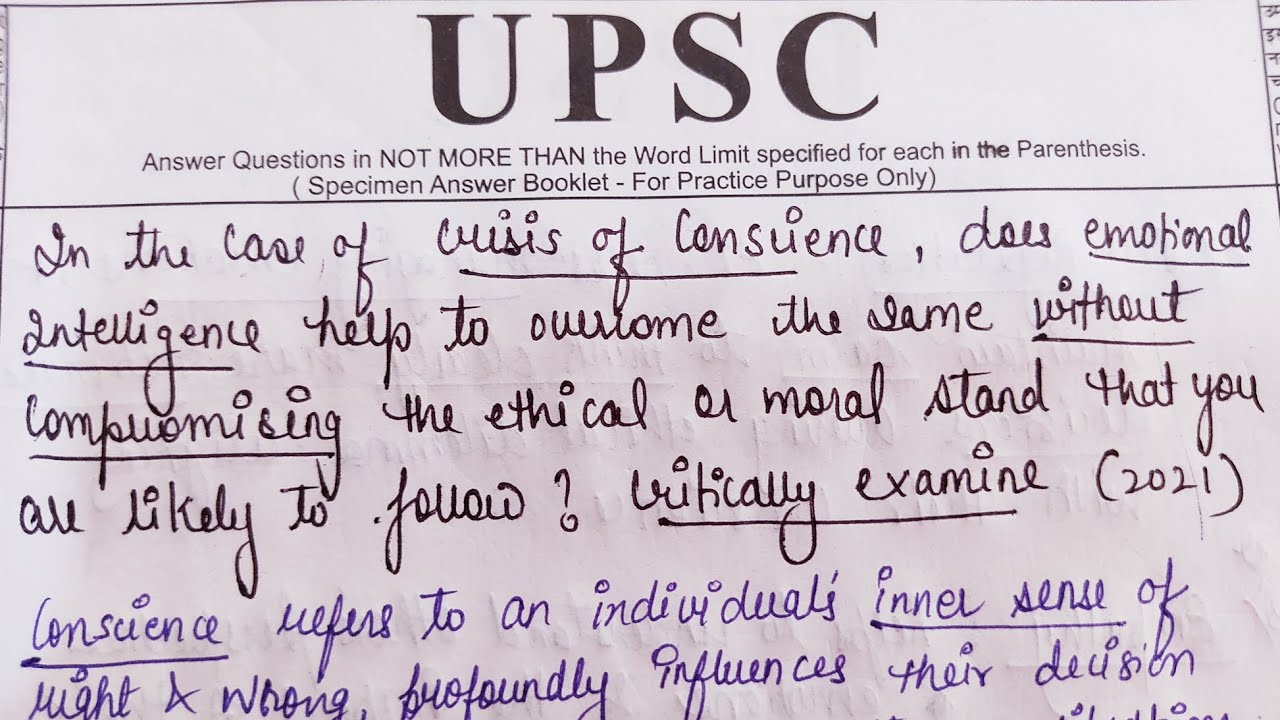 UPSC
Answer Questions in NOT MORE THAN the Word Limit specified for each in the Parenthesis.
( Specimen Answer Booklet - For Practice Purpose Only)
In the case of crisis of Conscience, does emotional
Intelligence help to overcome the same without
compromising the ethical or moral stand that you
are likely to follow? Critically examine (2021)
Conscience refers to an individual's inner sense of
right & wrong, profoundly influences their decision